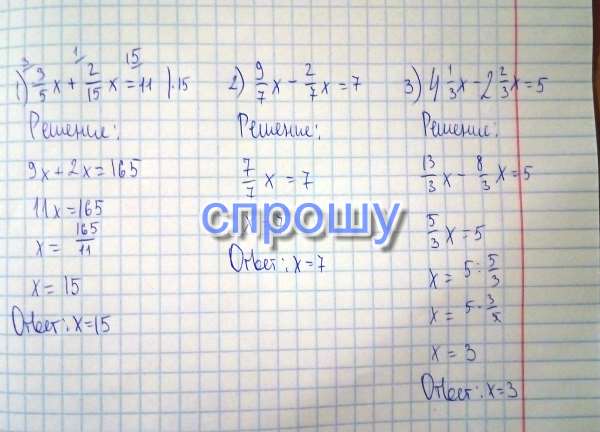 3 1 15
1) 3/5 x + 2/15 x = 11 | ·15
Решение:
9x + 2x = 165
11x = 165
x = 165/11
x = 15
Ответ: x = 15
2) 9/7 x - 2/7 x = 7
Решение:
7/7 x = 7
Ответ: x = 7
3) 4 1/3 x - 2 2/3 x = 5
Решение:
13/3 x - 8/3 x = 5
5/3 x = 5
x = 5 : 5/3
x = 5 · 3/5
x = 3
Ответ: x = 3
спрошу